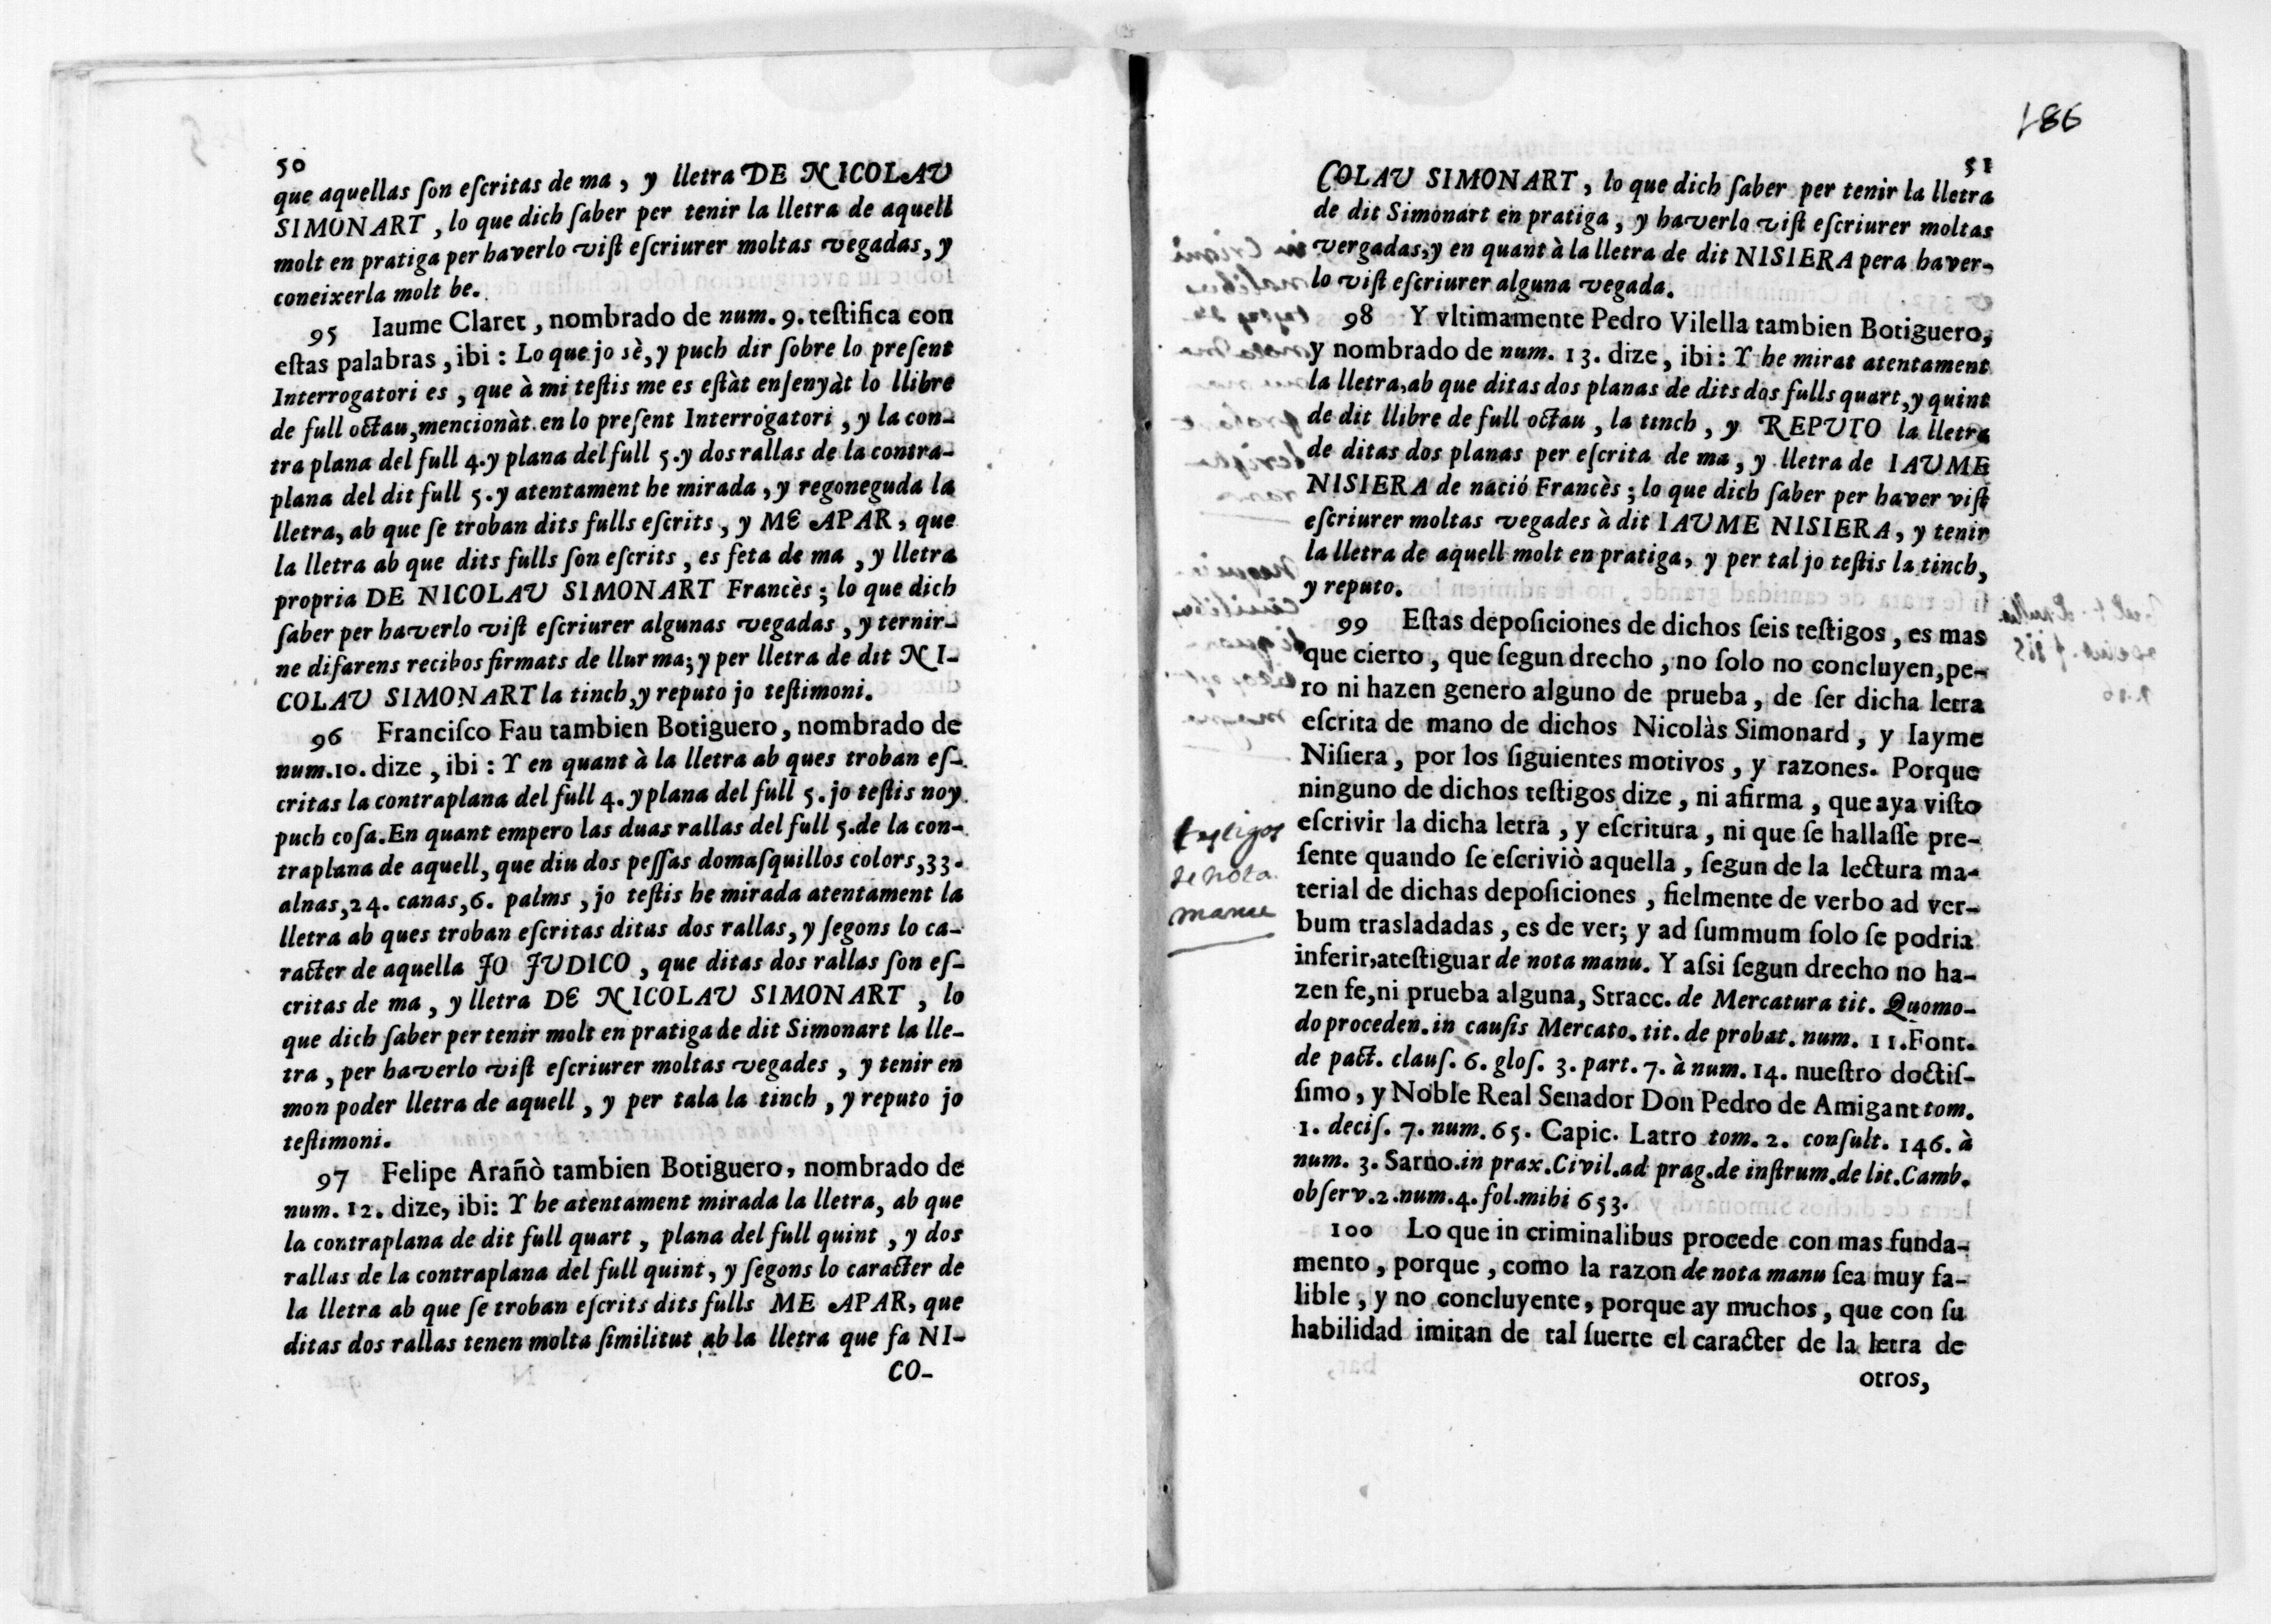 50
que aquellas ſon eſcritas de ma, y lletra DE NICOLAU
SIMONART, lo que dich ſaber per tenir la lletra de aquell
molt en pratiga per haverlo viſt eſcriurer moltas vegadas, y
coneixerla molt be.
95 Iaume Claret, nombrado de num. 9. teſtifica con
eſtas palabras, ibi: Lo que jo sè, y puch dir ſobre lo preſent
Interrogatori es, que à mi teſtis me es eſtàt enſenyàt lo llibre
de full octau, mencionàt en lo preſent Interrogatori, y la con-
tra plana del full 4. y plana del full 5. y dos rallas de la contra-
plana del dit full 5. y atentament he mirada, y regoneguda la
lletra, ab que ſe troban dits fulls eſcrits, y ME APAR, que
la lletra ab que dits fulls ſon eſcrits, es feta de ma, y lletra
propria DE NICOLAU SIMONART Francès; lo que dich
ſaber per haverlo viſt eſcriurer algunas vegadas, y ternir-
ne difarens recibos firmats de llur ma; y per lletra de dit NI-
COLAU SIMONART la tinch, y reputo jo teſtimoni.
96 Franciſco Fau tambien Botiguero, nombrado de
num. 10. dize, ibi: Y en quant à la lletra ab ques troban eſ-
critas la contraplana del full 4. y plana del full 5. jo teſtis noy
puch coſa. En quant empero las duas rallas del full 5. de la con-
traplana de aquell, que diu dos peſſas domaſquillos colors, 33.
alnas, 24. canas, 6. palms, jo teſtis he mirada atentament la
lletra ab ques troban eſcritas ditas dos rallas, y ſegons lo ca-
racter de aquella JO JUDICO, que ditas dos rallas ſon eſ-
critas de ma, y lletra DE NICOLAU SIMONART, lo
que dich ſaber per tenir molt en pratiga de dit Simonart la lle-
tra, per haverlo viſt eſcriurer moltas vegades, y tenir en
mon poder lletra de aquell, y per tala la tinch, y reputo jo
teſtimoni.
97 Felipe Arañò tambien Botiguero, nombrado de
num. 12. dize, ibi: Y he atentament mirada la lletra, ab que
la contraplana de dit full quart, plana del full quint, y dos
rallas de la contraplana del full quint, y ſegons lo caracter de
la lletra ab que ſe troban eſcrits dits fulls ME APAR, que
ditas dos rallas tenen molta ſimilitut ab la lletra que fa NI-
CO-
186
51
COLAU SIMONART, lo que dich ſaber per tenir la lletra
de dit Simonart en pratiga, y haverlo viſt eſcriurer moltas
vergadas, y en quant à la lletra de dit NISIERA pera haver-
lo viſt eſcriurer alguna vegada.
98 Y vltimamente Pedro Vilella tambien Botiguero,
y nombrado de num. 13. dize, ibi: Y he mirat atentament
la lletra, ab que ditas dos planas de dits dos fulls quart, y quint
de dit llibre de full octau, la tinch, y REPUTO la lletra
de ditas dos planas per eſcrita de ma, y lletra de IAUME
NISIERA de nació Francès; lo que dich ſaber per haver viſt
eſcriurer moltas vegades à dit IAUME NISIERA, y tenir
la lletra de aquell molt en pratiga, y per tal jo teſtis la tinch,
y reputo.
99 Eſtas depoſiciones de dichos ſeis teſtigos, es mas
que cierto, que ſegun drecho, no ſolo no concluyen, pe-
ro ni hazen genero alguno de prueba, de ſer dicha letra
eſcrita de mano de dichos Nicolàs Simonard, y Iayme
Niſiera, por los ſiguientes motivos, y razones. Porque
ninguno de dichos teſtigos dize, ni afirma, que aya viſto
eſcrivir la dicha letra, y eſcritura, ni que ſe hallaſſe pre-
ſente quando ſe eſcriviò aquella, ſegun de la lectura ma-
terial de dichas depoſiciones, fielmente de verbo ad ver-
bum trasladadas, es de ver; y ad ſummum ſolo ſe podria
inferir, ateſtiguar de nota manu. Y aſsi ſegun drecho no ha-
zen fe, ni prueba alguna, Stracc. de Mercatura tit. Quomo-
do proceden. in cauſis Mercato. tit. de probat. num. 11. Font.
de pact. clauſ. 6. gloſ. 3. part. 7. à num. 14. nueſtro doctiſ-
ſimo, y Noble Real Senador Don Pedro de Amigant tom.
1. deciſ. 7. num. 65. Capic. Latro tom. 2. conſult. 146. à
num. 3. Sarno. in prax. Civil. ad prag. de inſtrum. de lit. Camb.
obſerv. 2. num. 4. fol. mihi 653.
100 Lo que in criminalibus procede con mas funda-
mento, porque, como la razon de nota manu ſea muy fa-
lible, y no concluyente, porque ay muchos, que con ſu
habilidad imitan de tal ſuerte el caracter de la letra de
otros,
testigos
de nota
manu